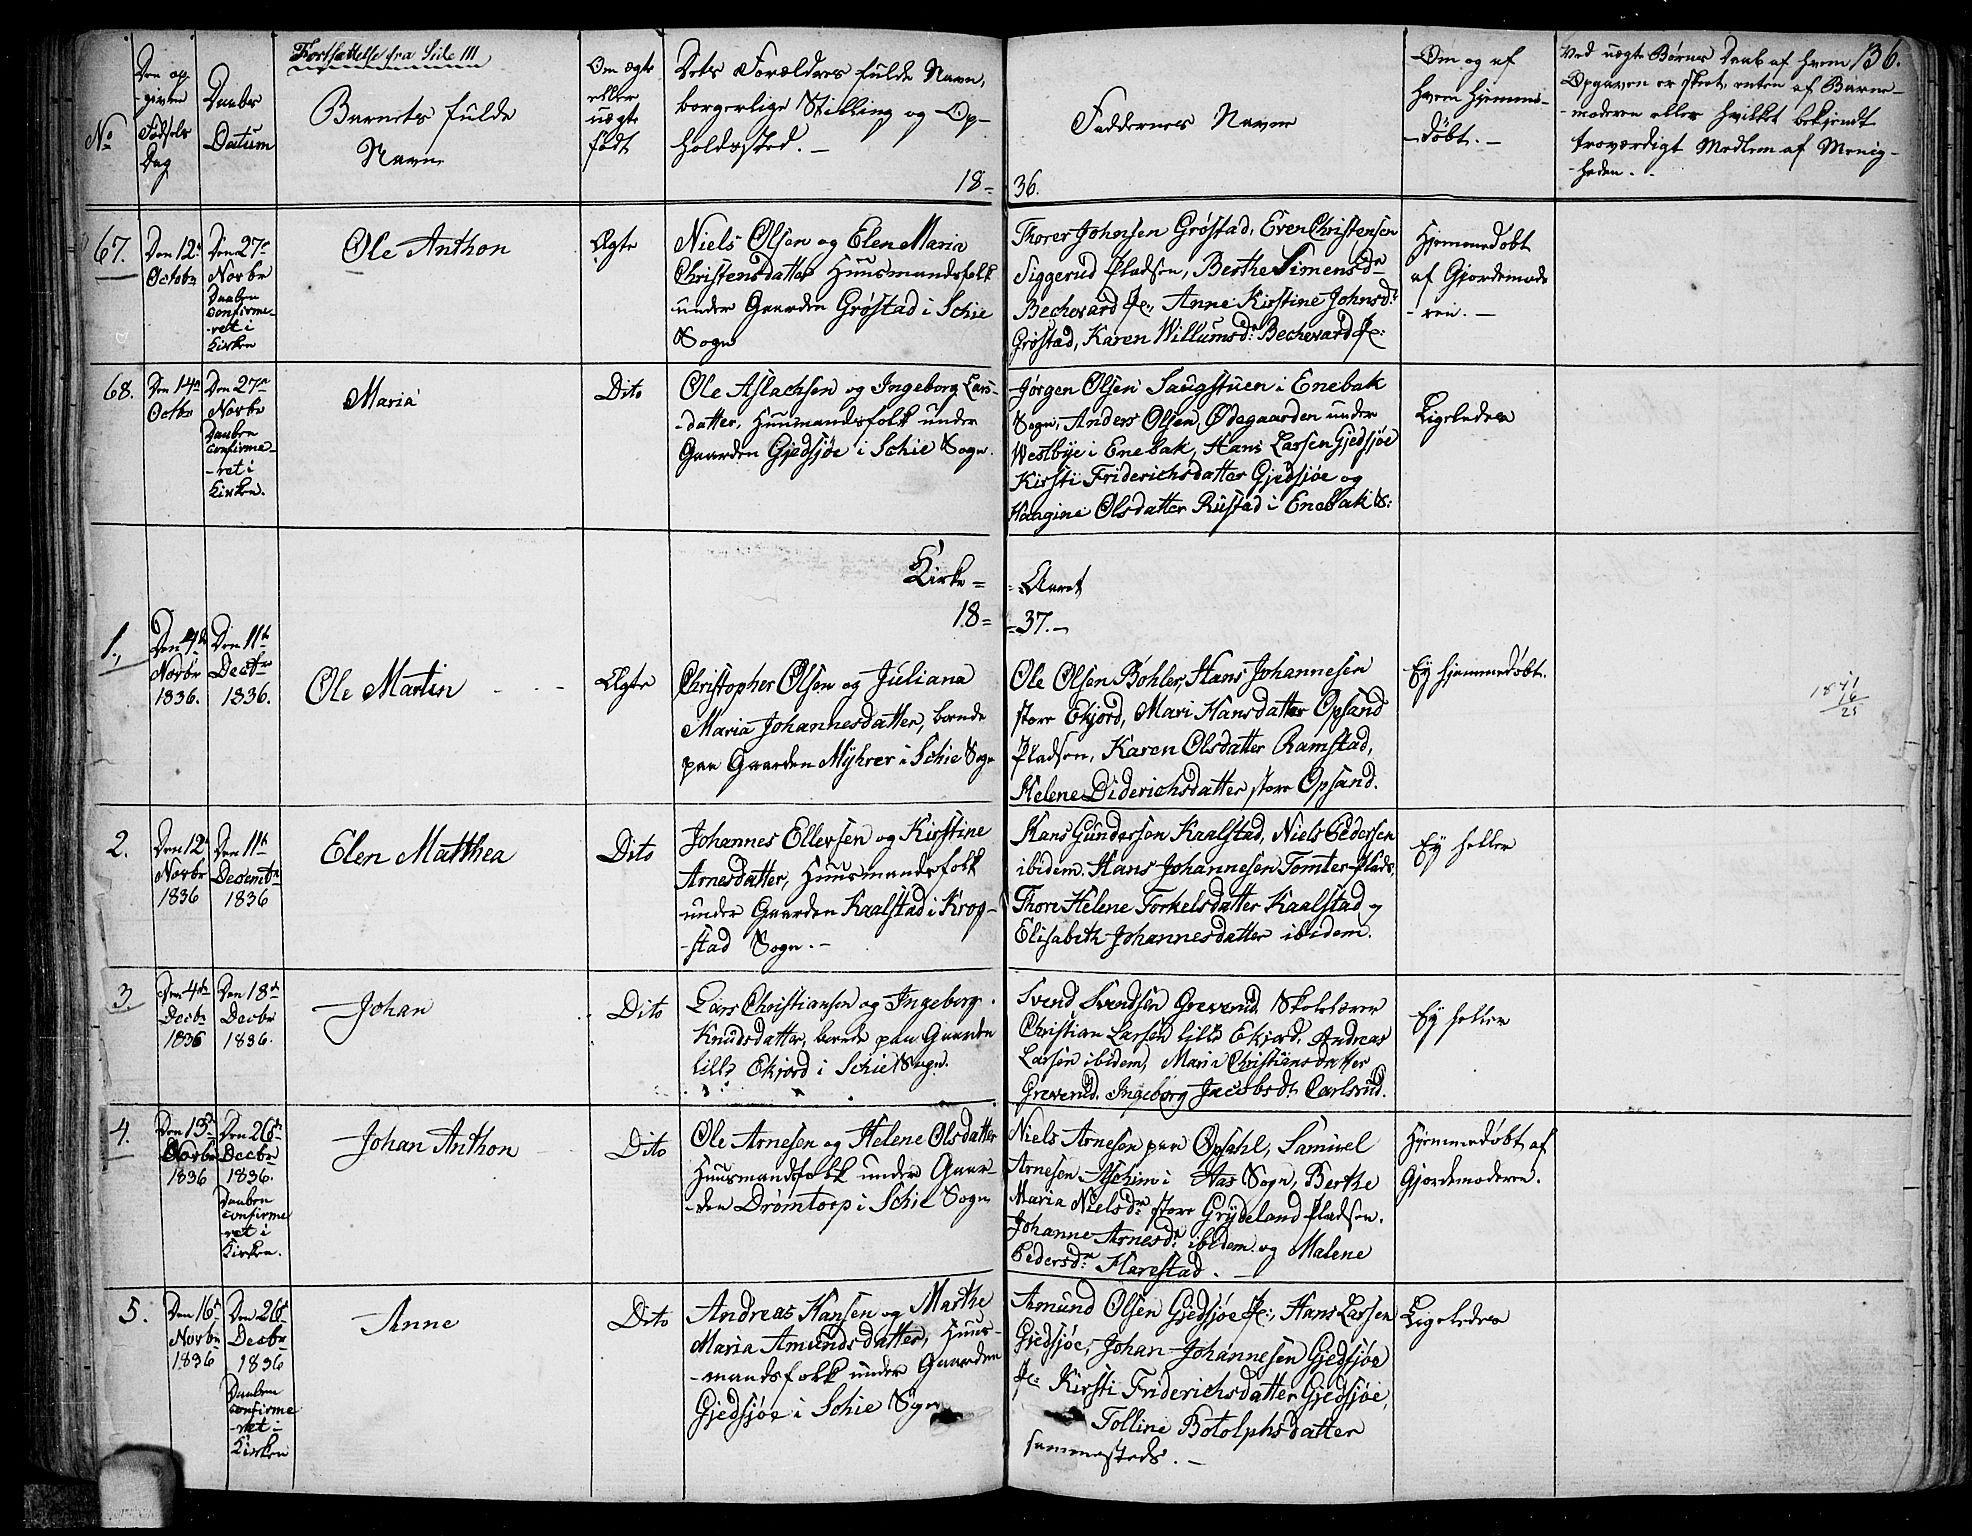 Fortsættelse fra Side 111
136.
No
Den op
-given
Fødsels
Dag
Daabs
Datum
Barnets fulde
Navn
Om ægte
eller
uægte
født
Dets Forældres fulde Navn,
borgerlige Stilling og Op-
holdssted. -
18=
36.
Faddernes Navne
Om og af
hvem hjemme-
-døbt. -
Ved uægte Børns Daab af hvem
Opgaven er skeet, enten af Barne-
-moderen eller hvilket bekjendt
troværdigt Medlem af Menig-
-heden. -
67.
Den 12te
Octobr
Den 27e
Novbr
Daaben
confirme-
-ret i
Kirken
Ole Anthon
Ægte
Niels Olsen og Elen Maria
Christensdatter Huusmandsfolk
under Gaarden Grøstad i Schie
Sogn
Thorer Johnsen Grøstad, Even Christensen
Siggerud Pladsen, Berthe Simensdr
Bechevard Pl:, Anne Kirstine Johnsdr
Grøstad, Karen Willumsdr Bechevard Pl:
Hjemmedøbt
af Gjordemode
-ren. -
68.
Den 14n
Octbr
Den 27n
Novbr
Daaben
confirme-
-ret i
Kirken.
Maria
Dito
Ole Aslachsen og Ingeborg Lars-
-datter, Huusmandsfolk under
Gaarden Gjedsjøe i Schie Sogn.
Jørgen Olsen Saugstuen i Enebak
Sogn, Anders Olsen, Ødegaarden under
Westbye i Enebak, Hans Larsen Gjedsjøe
Kirsti Friderichsdatter Gjedsjøe og
Haagine Olsdatter Rustad i Enebak S:
Ligeledes
Kirke=
=Aaret
18=
=37.-
1.
Den 4de
Novbr
1836.
Den 11te
Decbr
1836.
Ole Martin
Ægte
Christopher Olsen og Juliana
Maria Johannesdatter, boende
paa Gaarden Myhrer i Schie Sogn
Ole Olsen Bøhler, Hans Johannesen
store Ekjord, Mari Hansdatter Opsand
Pladsen, Karen Olsdatter Ramstad,
Helene Diderichsdatter store Opsand.
Ey hjemmedøbt.
1841
16
25
2.
Den 12te
Novbr
1836
Den 11te
Decembr
1836
Elen Matthea
Dito
Johannes Ellevsen og Kirstine
Arnesdatter, Huusmandsfolk
under Gaarden Kaalstad i Krog-
-stad Sogn. -
Hans Gundersen Kaalstad, Niels Pedersen
ibidem. Hans Johannesen Tomter-Plads,
Thore Helene Torkelsdatter Kaalstad og
Elisabeth Johannesdatter ibidem.
Ey heller
3.
Den 4de
Decbr
1836
Den 18de
Decbr
1836.
Johan
Dito
Lars Christiansen og Ingeborg
Knudsdatter, boende paa Gaarden
lille Ekjord i Schie Sogn.
Svend Svendsen Greverud, Skolelærer
Christian Larsen lille Ekjord, Andreas
Larsen ibidem, Maria Christiansdatter
Greverud. Ingeborg Jacobsdr Carlsrud.
Ey heller
4.
Den 13de
Novbr
1836
Den 26de
Decbr
1836.
Daaben
confirme
-ret i
Kirken.
Johan Anthon
Dito
Ole Arnesen og Helene Olsdatter
Huusmandsfolk under Gaar-
-den Drømtorp i Schie Sogn
Niels Arnesen paa Opsahl, Samuel
Arnesen Aschim i Aas Sogn, Berthe
Maria Nielsdr store Grydeland Pladsen.
Johanne Arnesdr ibidem og Malene
Pedersdr Harestad. -
Hjemmedøbt af
Gjordemoderen.
5.
Den 16de
Novbr
1836
Den 26de
Decbr
1836
Daaben
confirme
-ret i
Kirken
Anne
Dito
Andreas Hansen og Marthe
Maria Amundsdatter, Huus-
-mandsfolk under Gaarden
Gjedsjøe i Schie Sogn
Amund Olsen Gjedsjøe Pl:, Hans Larsen
Gjedsjøe, Johan Johannesen Gjedsjøe
Pl: Kirsti Friderichsdatter Gjedsjøe,
Tolline Botolphsdatter
sammesteds. -
Ligeledes